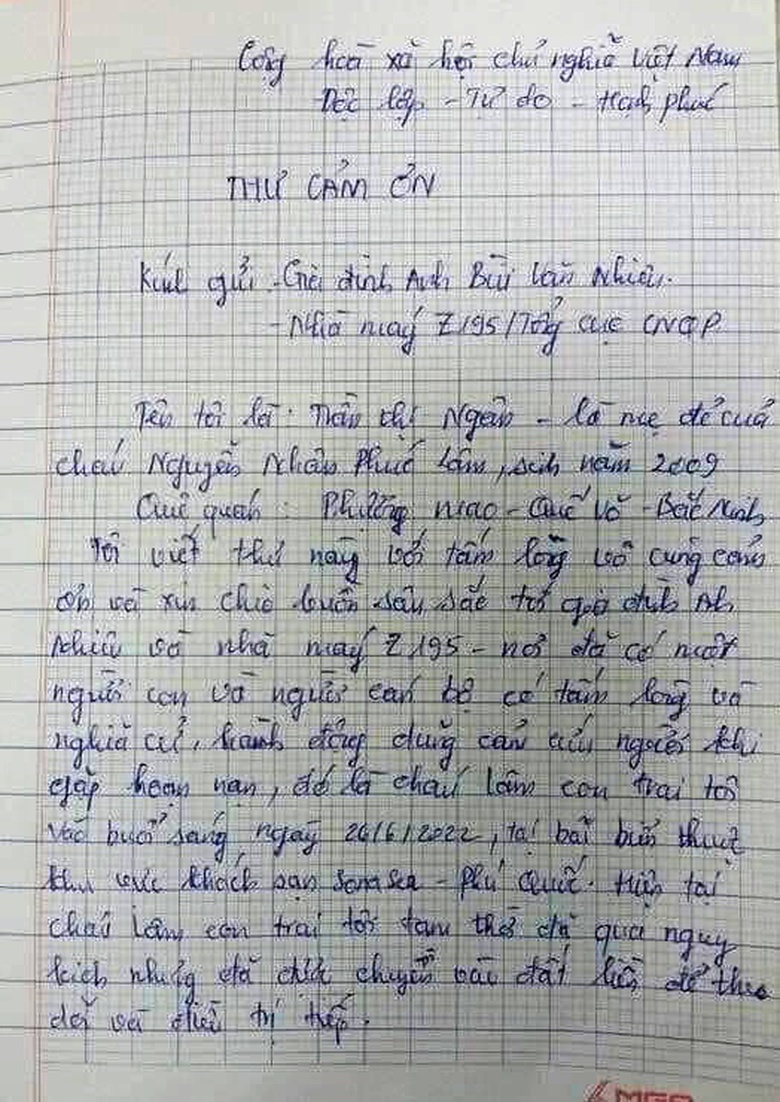 Cộng hoà xã hội chủ nghĩa Việt Nam
Độc lập - Tự do - Hạnh phúc
THƯ CẢM ƠN
Kính gửi - Gia đình Anh Bùi Văn Nhiên.
- Nhà máy Z195/Tổng cục CNQP
Tên tôi là: Trần Thị Ngân - là mẹ đẻ của
cháu Nguyễn Nhân Phúc Lâm, sinh năm 2009
Quê quán: Phượng Mao - Quế Võ - Bắc Ninh
Tôi viết thư này với tấm lòng vô cùng cảm
ơn và xin chia buồn sâu sắc tới gia đình Anh
Nhiên và nhà máy Z195 - nơi đã có một
người con và người cán bộ có tấm lòng và
nghĩa cử, hành động dũng cảm cứu người khi
gặp hoạn nạn, đó là cháu Lâm con trai tôi
vào buổi sáng ngày 26/6/2022, tại bãi biển thuộc
khu vực khách sạn Sonasea - Phú Quốc. Hiện tại
cháu Lâm con trai tôi tạm thời đã qua nguy
kịch nhưng đã được chuyển vào đất liền để theo
dõi và điều trị tiếp.
MGO